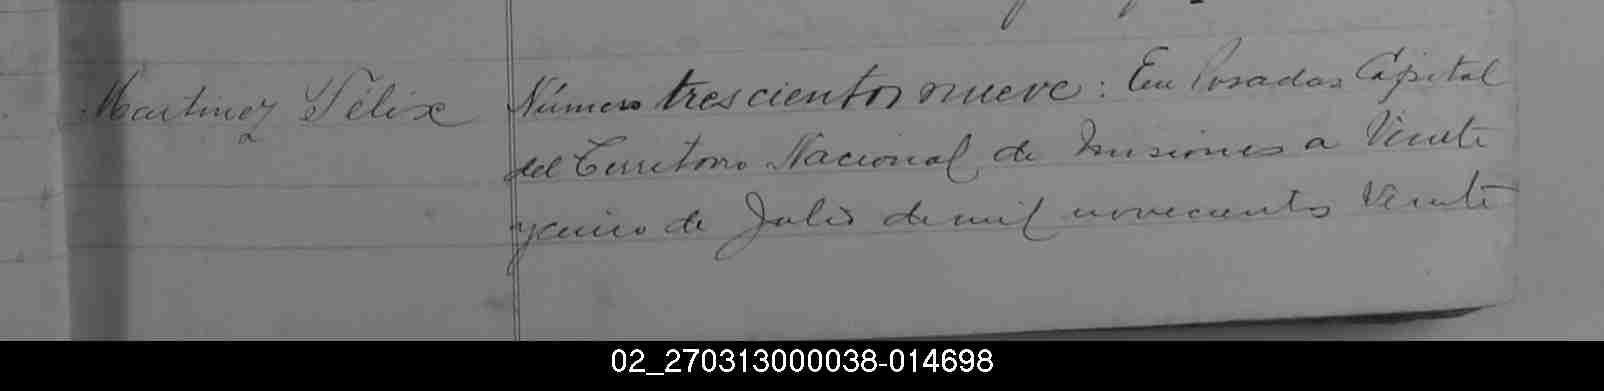 Martinez Félix
Número trescientos nueve: En Posadas Capital
del Territorio Nacional de Misiones a Veinte
y cinco de Julio de mil novecientos Veinte
02_270313000038-014698